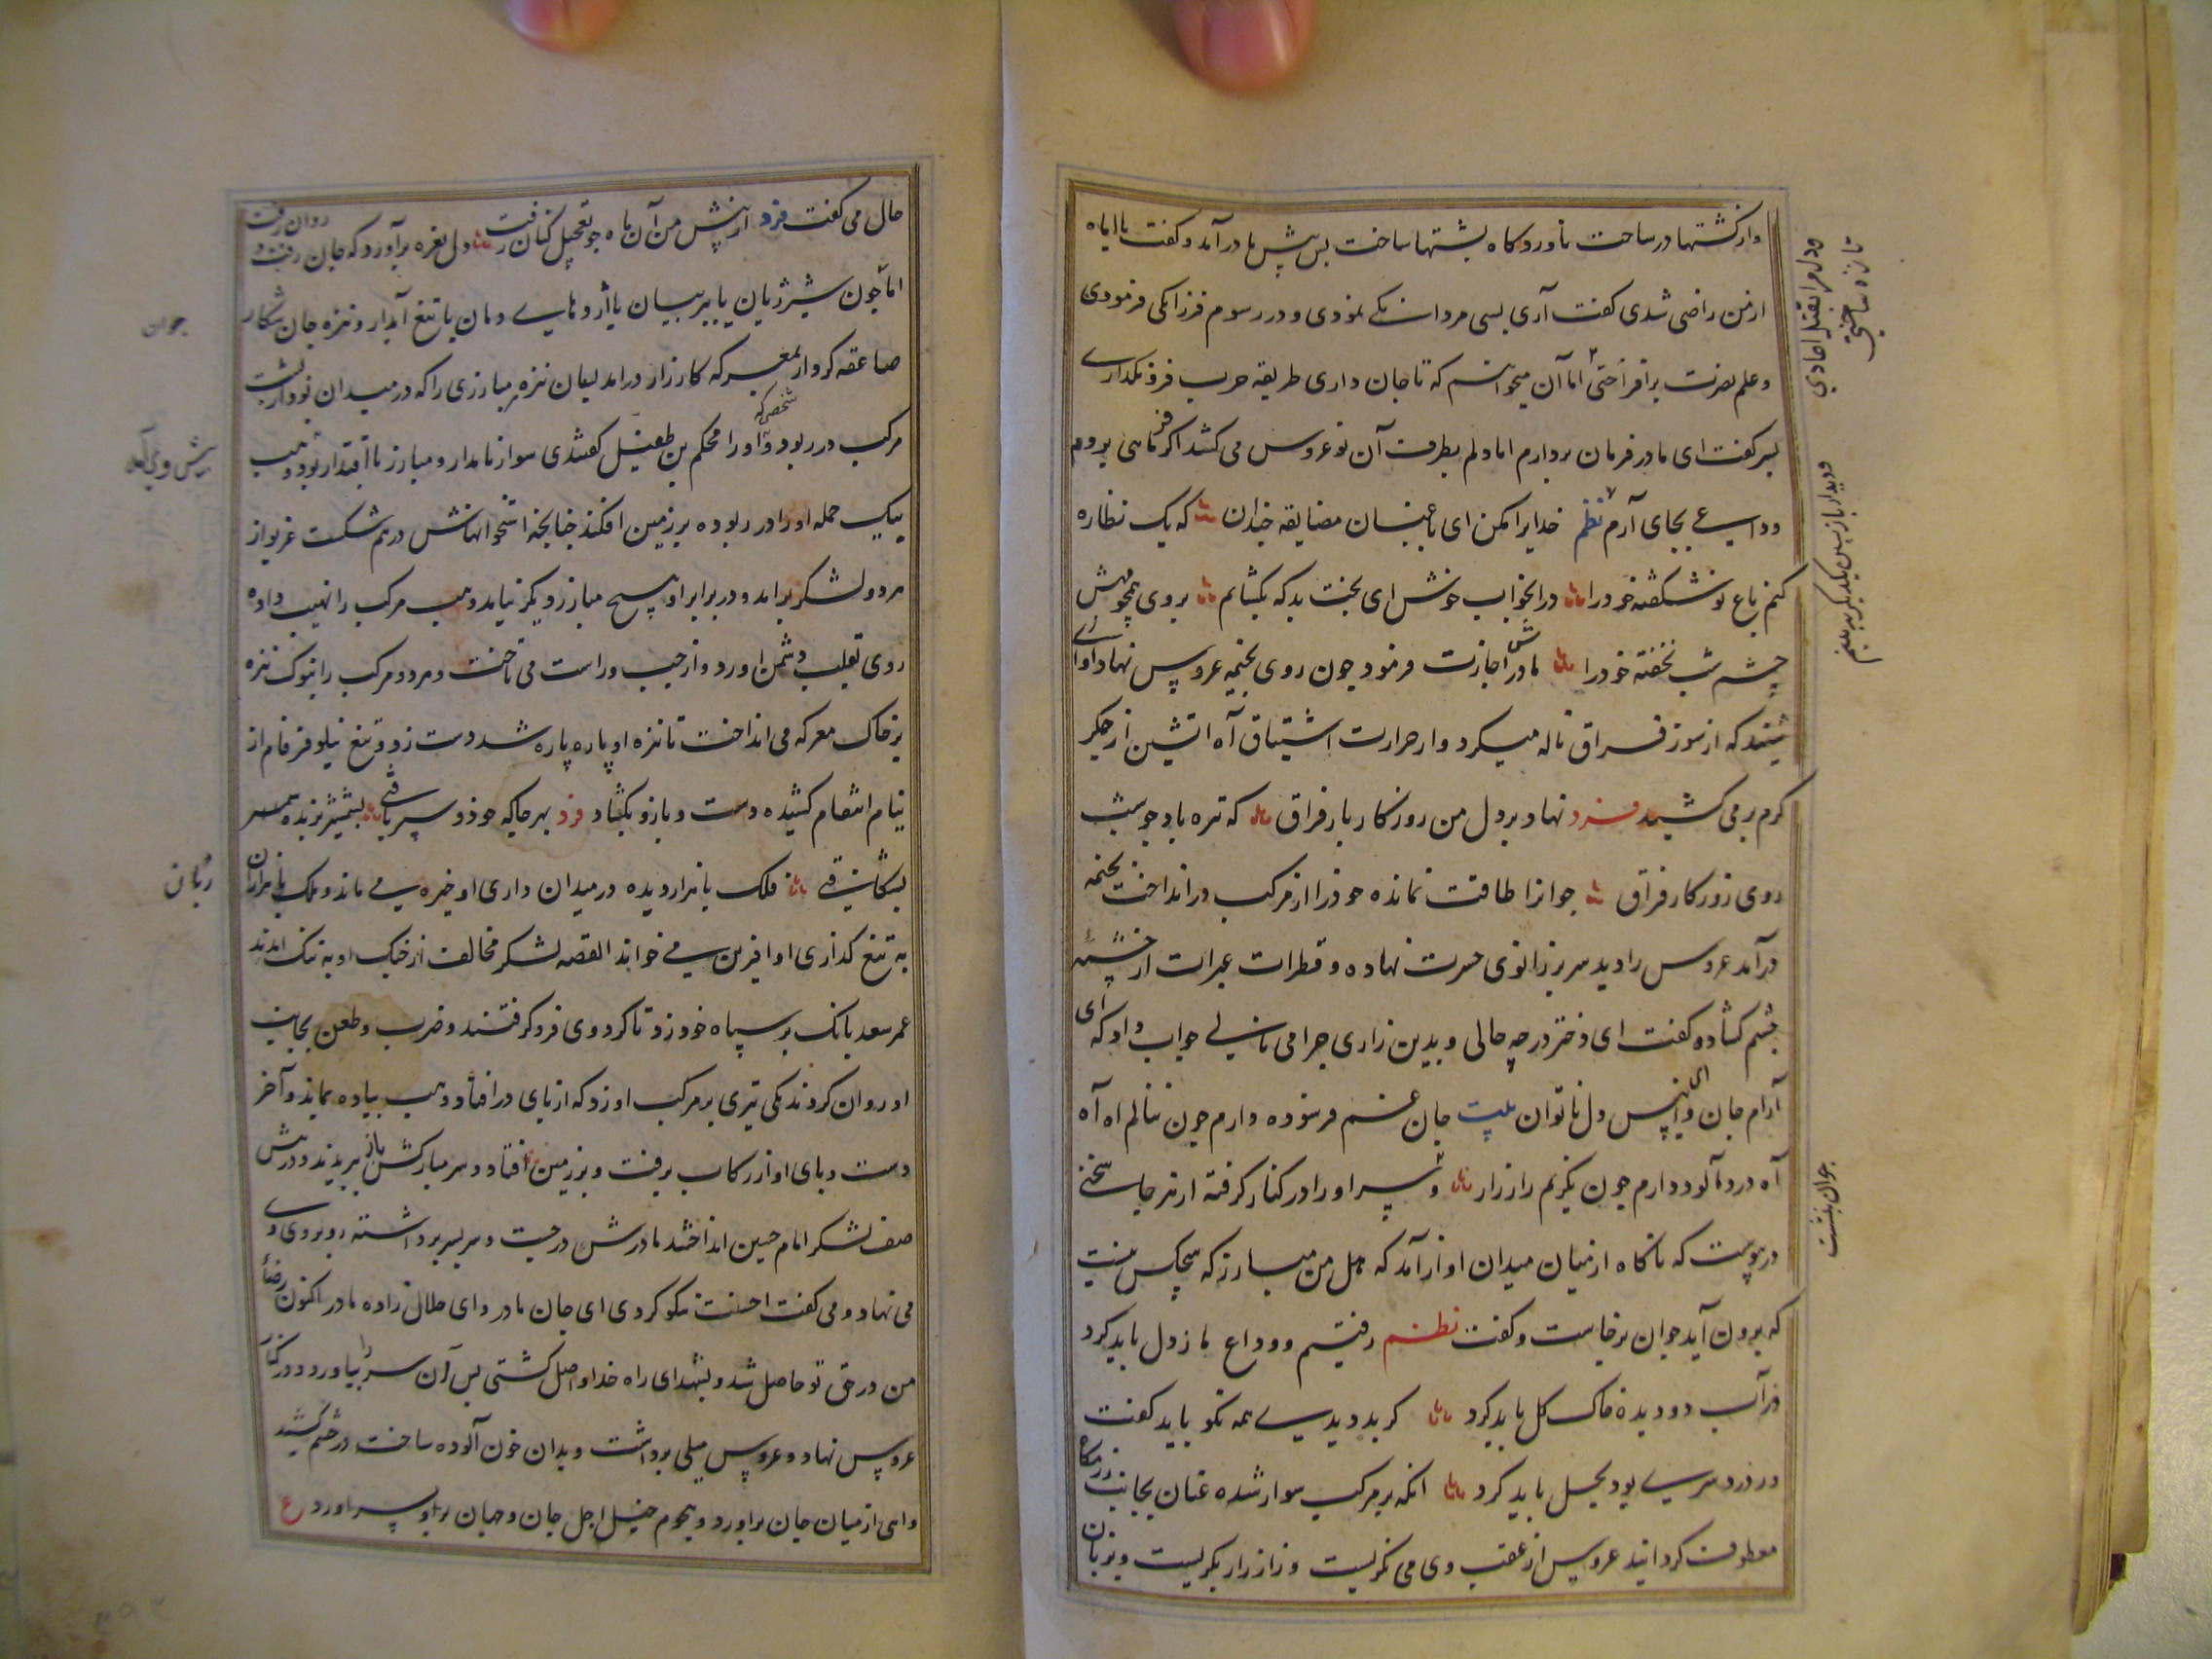 واز کشتها در ساحت ناوردگاه پشتها ساخت پس پیش مادر آمد و گفت یا اماه
از من راضی شدی گفت آری بسی مردانگی نمودی و در رسوم فرزانگی فزمودی
وعلم نصرت برافراختی اما آن میخواهم که تا جان داری طریقه حرب فرو نگذاری
پسر گفت ای مادر فرمان بردارم اما دلم بطرف آن نو عروس می کشد اگر فرمایی بروم
وداعی بجای آرم نظم خدایرا مکن ای باغبان مضایقه چندان که یک نظاره
کنم باغ نو شکفته خود را درا بخواب خوش ای بخت بد که بکشایم بروی همچو مهش
چشم شب نخفته خود را مادرش اجازت فرمود چون روی بخیمه عروس نهاد آوازی
شنید که از سوز فراق ناله میکرد و از حرارت اشتیاق آه اتشین از جگر
گرم بر می کشید فرد نهاد بر دل من روزگار بار فراق که تیره باد چو شب
روی روزگار فراق جوانرا طاقت نمانده خود را از مرکب در انداخت بخیمه
درآمد عروس را دید سر بر زانوی حسرت نهاده و قطرات عبرات از چشمه
چشم کشاده گفت ای دختر در چه حالی و بدین زاری چرا می نالی جواب داد که ای
آرام جان و ای انیس دل ناتوان بیت جان غم فرسوده دارم چون ننالم اه آه
آه درد آلود دارم چون نگریم زار زار و پسر او را در کنار گرفته از هر جا سخنی
در پیوست که ناگاه از میان میدان اواز آمد که هل من مبارز که هیچکس نیست
که برون آید جوان برخاست و گفت نظم رفتیم و وداع ما ز دل باید کرد
در آب دو دیده خاک گل باید کرد گر بد دیدی همه نکو باید گفت
ور دردسری بود بحل باید کرد انکه بر مرکب سوار شده عنان بجانب رزمگاه
معطوف گردانید عروس از عقب وی می نگریست و زار زار بگریست و بزبان
حال می گفت فرد از پیش من آن ماه چو تعجیل کنان رفت دل نعره برآورد که جان رفت و
روان رفت
اما جون شیر ژیان یا ببر بیان یا اژدهایی دمان با تیغ آبدار و نیزه جان شکار
صاعقه کردار بمعرکه کارزار درامد لمعان نیزه مبارزی را که در میدان بود از پشت
مرکب در ربود و شخصی که او را محکم بن طفیل گفتندی سوار نامدار و مبارز با اقتدار بود وهب
بیک حمله او را در ربوده بر زمین افکند چنانچه استخوانهاش در هم شکست غریو از
هر دو لشکر برامد و در برابر او هیچ مبارز دیگر نیامد وهب مرکب را نهیب داده
روی بقلب دشمن اورد و از چپ و راست می تاخت و مرد و مرکب را بنوک نیزه
بر خاک معرکه می انداخت تا نیزه او پاره پاره شد دست زد و تیغ نیلوفر فام از
نیام انتقام کشیده دست و بازو بکشاد فرد بهر جا که خود و سر یافتی بشمشیر
بشکافتی فلک با هزار دیده در میدان داری او خیره می ماند و ملک با هزاران زبان
به تیغ گذاری او افرین می خواند القصه لشکر مخالف از جنگ او به تنگ امدند
عمر سعد بانگ بر سپاه خود زد تا گرد وی فرو گرفتند و ضرب و طعن بجانب
او روان کردند یکی تیری بر مرکب او زد که از پای در افتاد و وهب پیاده بماند و آخر
دست و پای او از رکاب برفت و بر زمین افتاد و سر مبارکش باز بریدند و در پیش
صف لشکر امام حسین انداختند مادرش در جست و سر پسر برداشته رو بروی وی
می نهاد و می گفت احسنت نیکو کردی ای جان مادر و ای حلال زاده مادر اکنون رضای
من در حق تو حاصل شد و بشهدای راه خدا واصل گشتی پس آن سر را بیاورد و در کنار
عروس نهاد و عروس میلی برداشت و بدان خون آلوده ساخت در چشم کشید
واهی از میان جان براورد و هجوم خیل اجل جان و جهان بر او بسر اورد ع